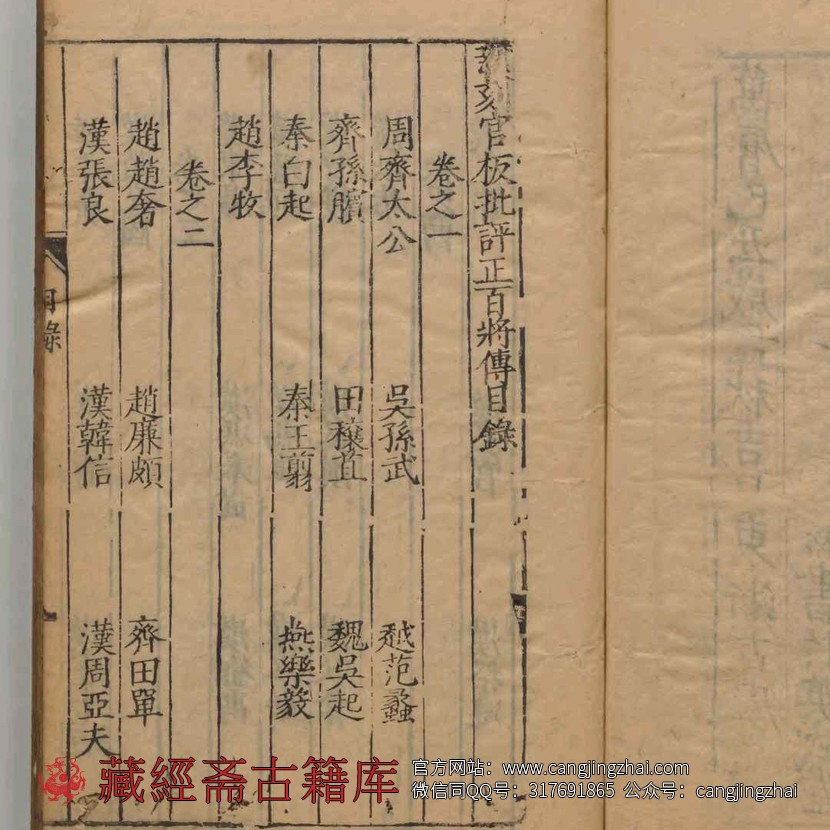 新刻官板批評正百將傳目錄
卷之一
周齊太公 吳孫武 越范蠡
齊孫臏 田穰苴 魏吳起
秦白起 秦王翦 燕樂毅
趙李牧
卷之二
趙趙奢 趙廉頗 齊田單
漢張良 漢韓信 漢周亞夫
目錄
藏經斋古籍库
官方网站：www.cangjingzhai.com
微信同QQ号：317691865 公众号：cangjingzhai